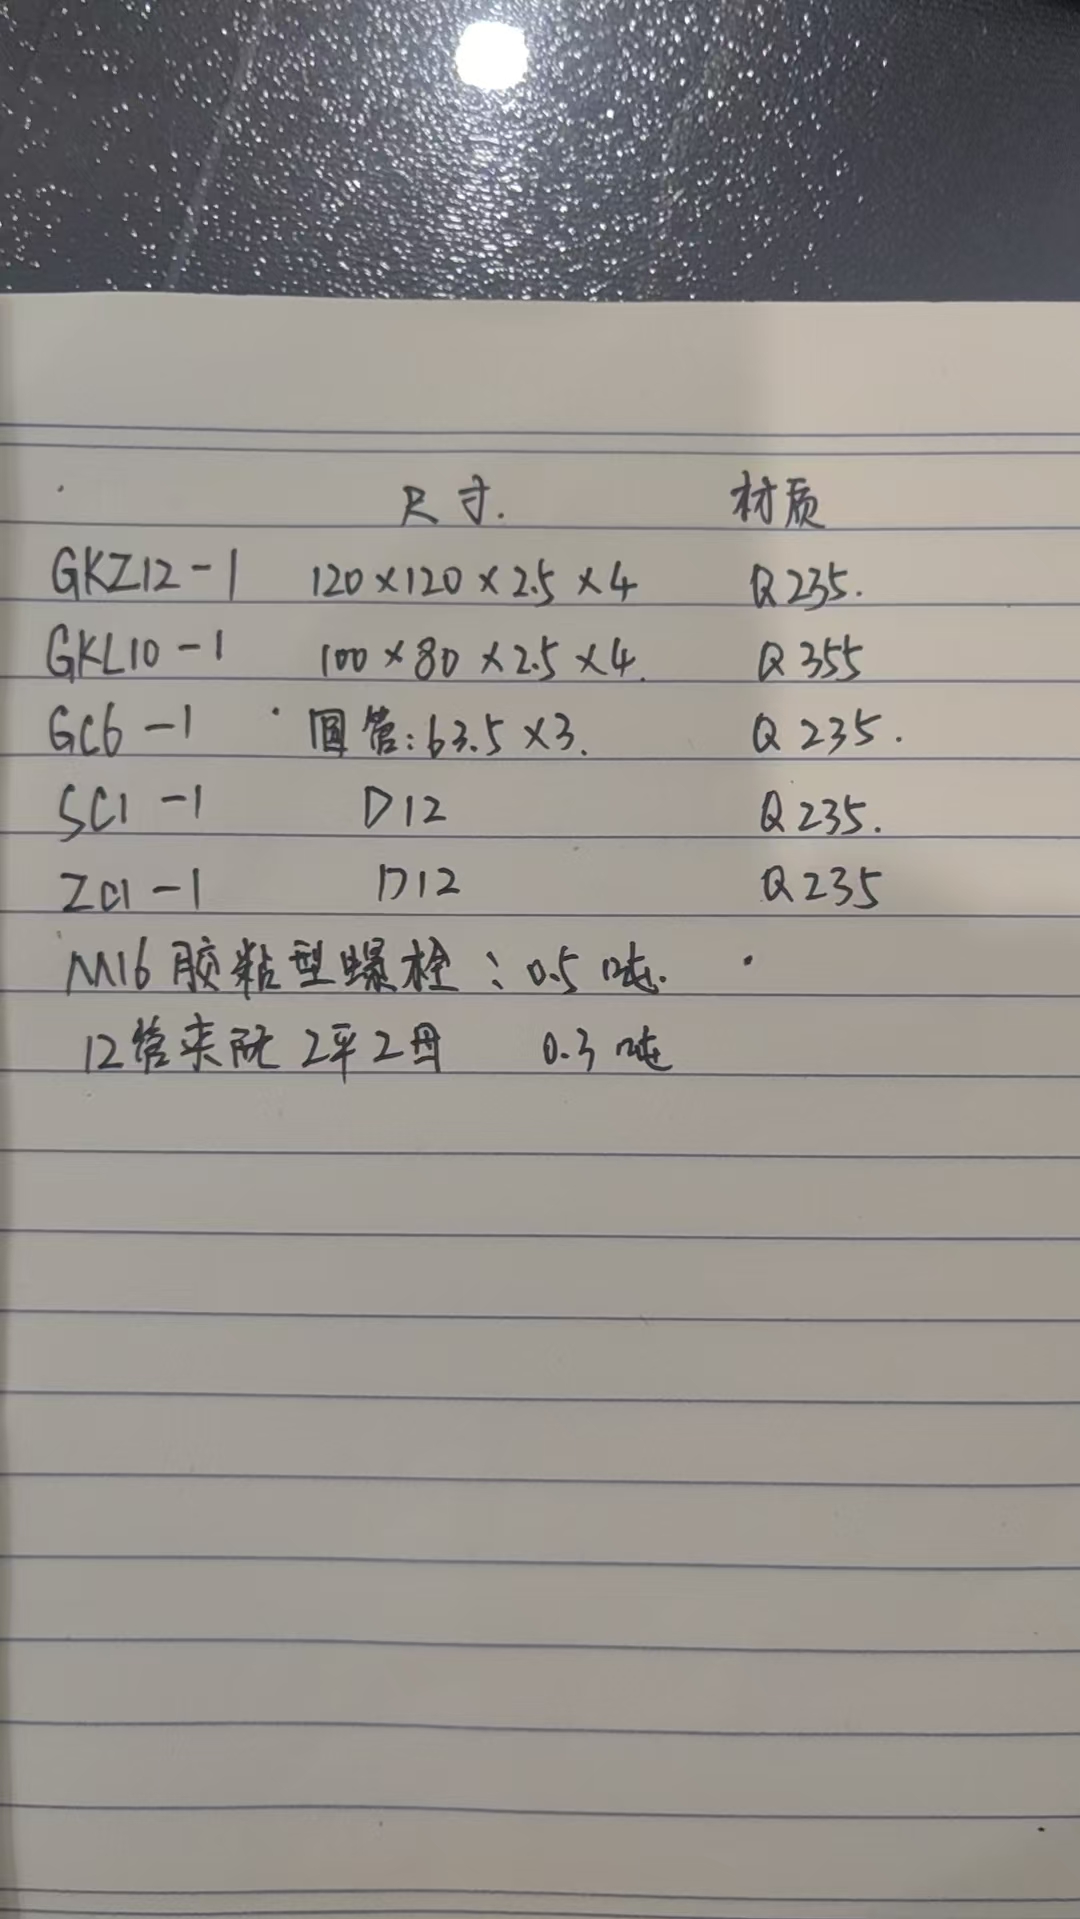 尺寸. 材质
GKZ12-1 120×120×2.5×4 Q235.
GKL10-1 100×80×2.5×4. Q355
GC6-1 圆管:63.5×3. Q235.
SC1-1 D12 Q235.
ZC1-1 D12 Q235
M16胶粘型螺栓:0.5吨.
12管 2平2母 0.3吨